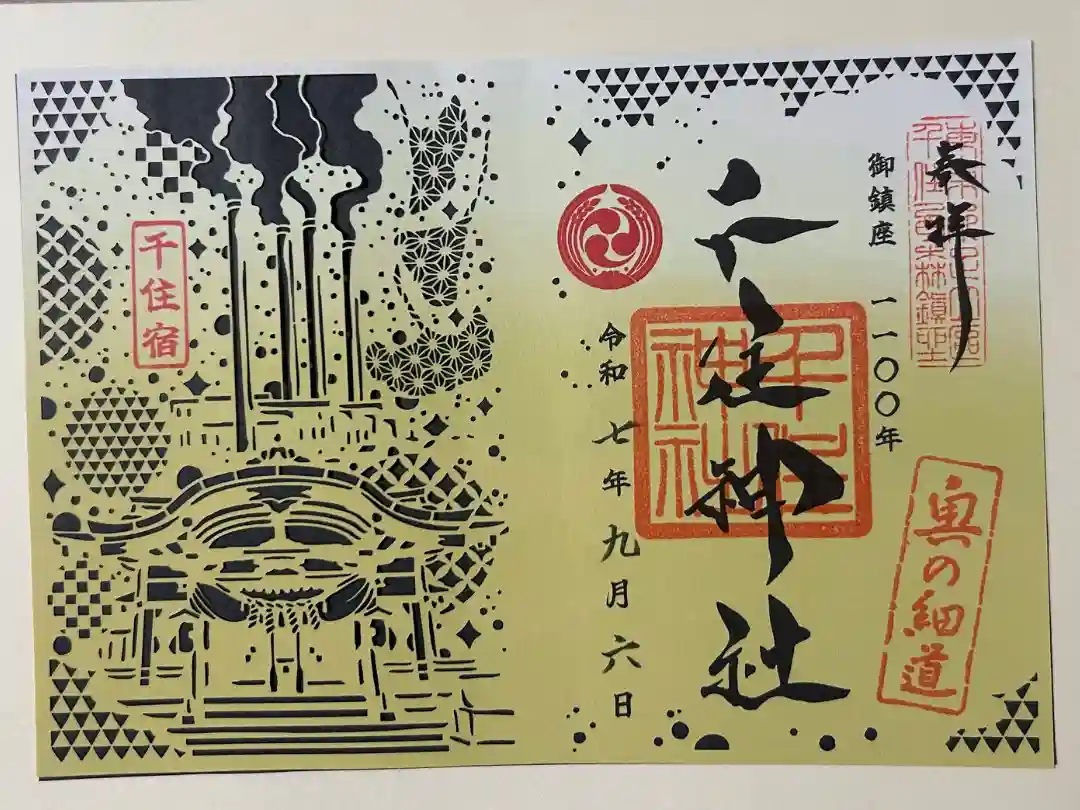 奉拝
御鎮座 一一〇〇年
奥の細道
千住神社
千住
神社
令和七年九月六日
千住宿